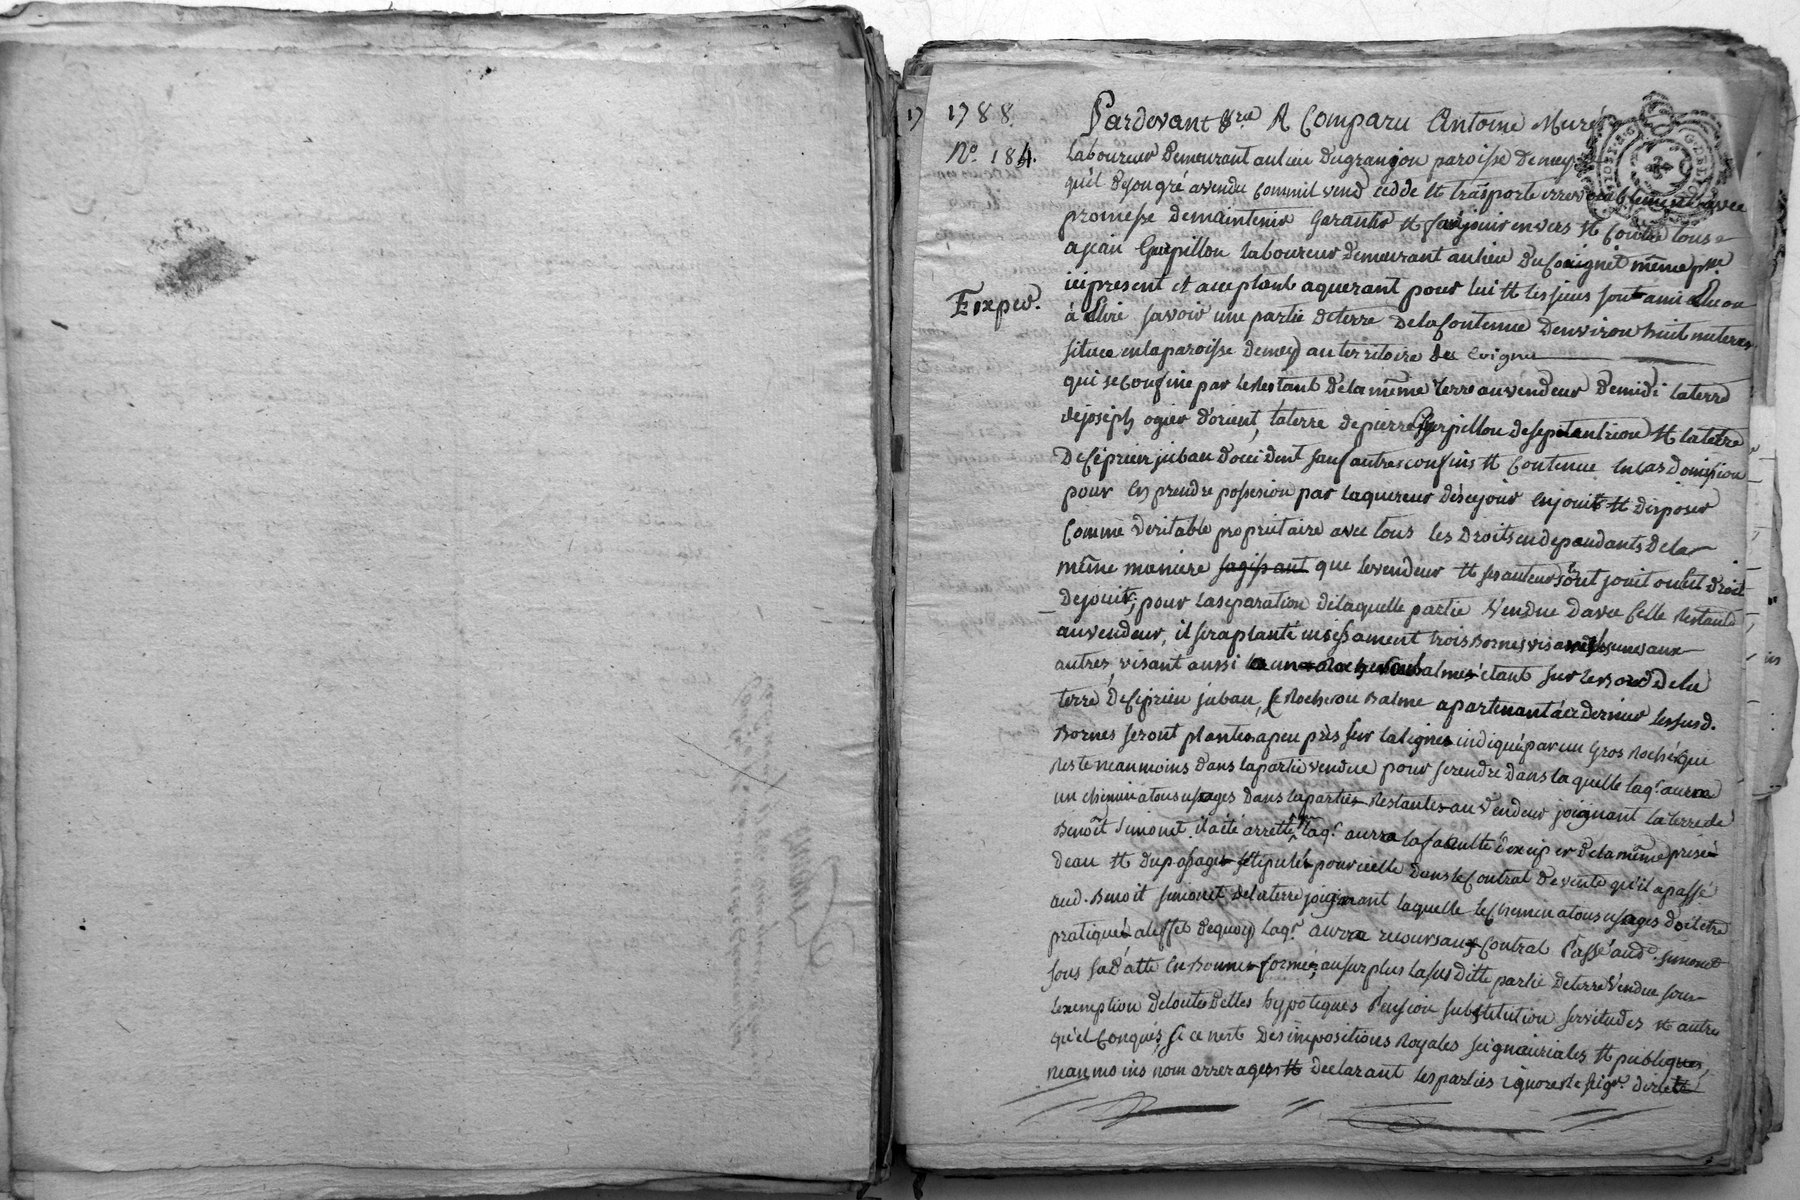 17 1788.
N.o 184.
Exped.
Pardevant A Comparu Antoine Muré
laboureur demeurant au lieu dugranjon paroisse demeys
quil desongré avendu Comm'il vend cedde & trasporte irrevocablement avec
promesse demaintenir garantir & faire jouir envers & Contre tous
ajean Guerpillon laboureur demeurant aulieu du même p.sse
icipresent et aceptant aquerant pour lui & les siens son ami Elu ou
à Elire savoir une partie deterre dela Contenue denviron huit
située enlaparoisse demeys au territoire de
qui seconfine par lerestant delamême terre auvendeur demidi laterre
dejoseph ogier d'orient, laterre depierre Guerpillon deseptentrion & laterre
deCiprien juban d'occident sauf autresconfins & Contenue encas domission
pour En prendre possesion par laquereur dèscejour enjouir & disposer
Comme veritable propriétaire avec tous les droits endependants dela
même maniere sagissant que levendeur & sesauteurs ont jouit ouEut droit
dejouir, pour laseparation delaquelle partie vendue davec Celle Restante
auvendeur, il seraplanté incessament trois Bornes visant les unes aux
autres, visant aussi balme étant sur lebord dela
terre deCiprien juban, le Rocher ou Balme apartenant àcedernier lessusd.
Bornes seront plantées apeu près sur laligne indiqué par un Gros Rocher qui
Reste neanmoins dans lapartie vendue pour serendre dans laquelle laq.r aurra
un chemin atous usages dans lapartie Restante au vendeur joignant laterre de
Benoît Simonet, il a été arretté que laq.r aurra la faculté dexciper delamême prise
deau & dupassage stipulé pour icelle dans le Contrat devente qu'il apassé
aud. Benoit Simonet delaterre joignant laquelle lechemin atous usages doit être
pratiqué aleffet dequoy laq.r aurra recours aux Contrat Passé aud. Simonet
sous sa datte En Bonne forme, ausurplus lasusditte partie deterre vendue sous
lexemption detoutes dettes hypoteques Pension substitution servitudes & autre
quelConques, si ce nest des impositions Royales seigneuriales & publiques
neanmoins nom arreragés & declarant lesparties ignorer le seig.r direct